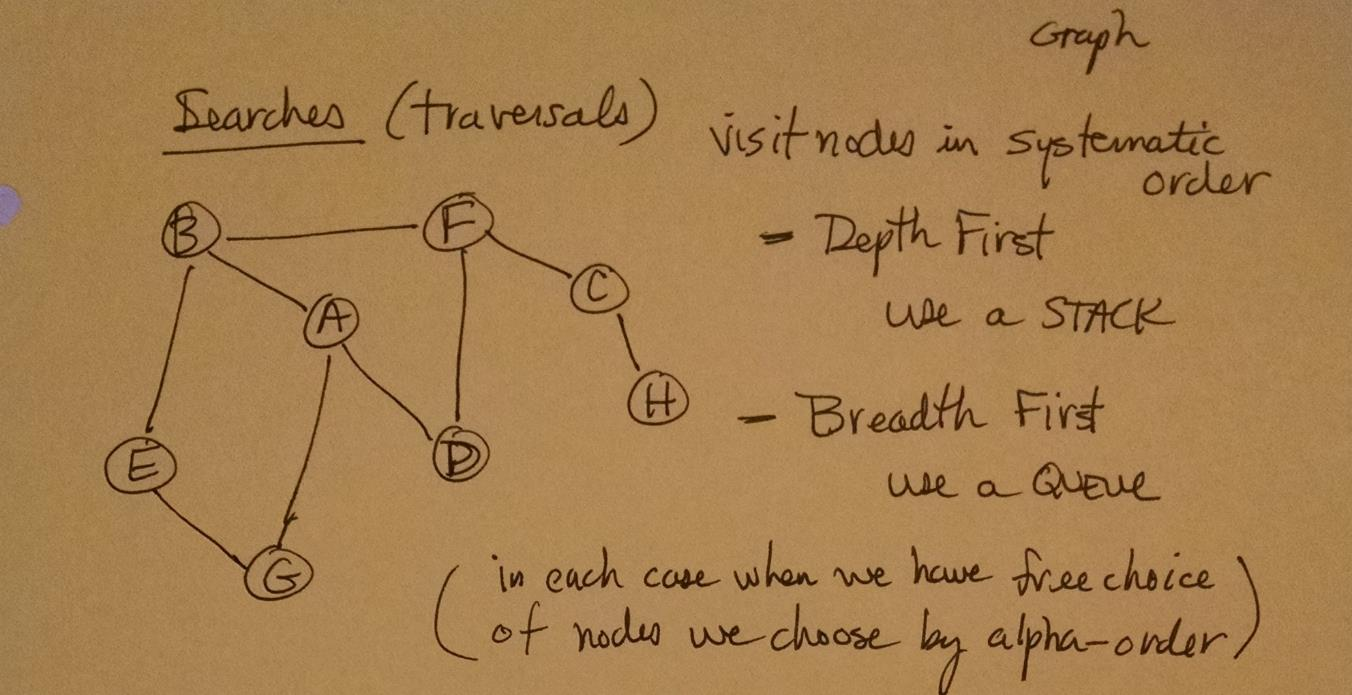 Graph
Searches (traversals)
visit nodes in systematic
order
B
F
- Depth First
C
A
use a STACK
H
- Breadth First
E
D
use a QUEUE
G
(in each case when we have free choice
of nodes we choose by alpha-order)